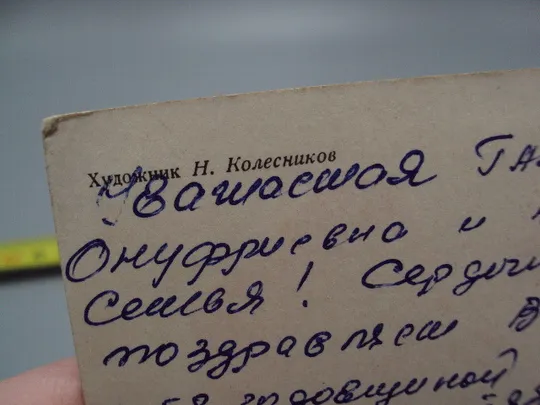 Художник Н. Колесников
Уважаемая Га
Онуфриевна и
семья! Сердеч
поздравляем В
годовщиной